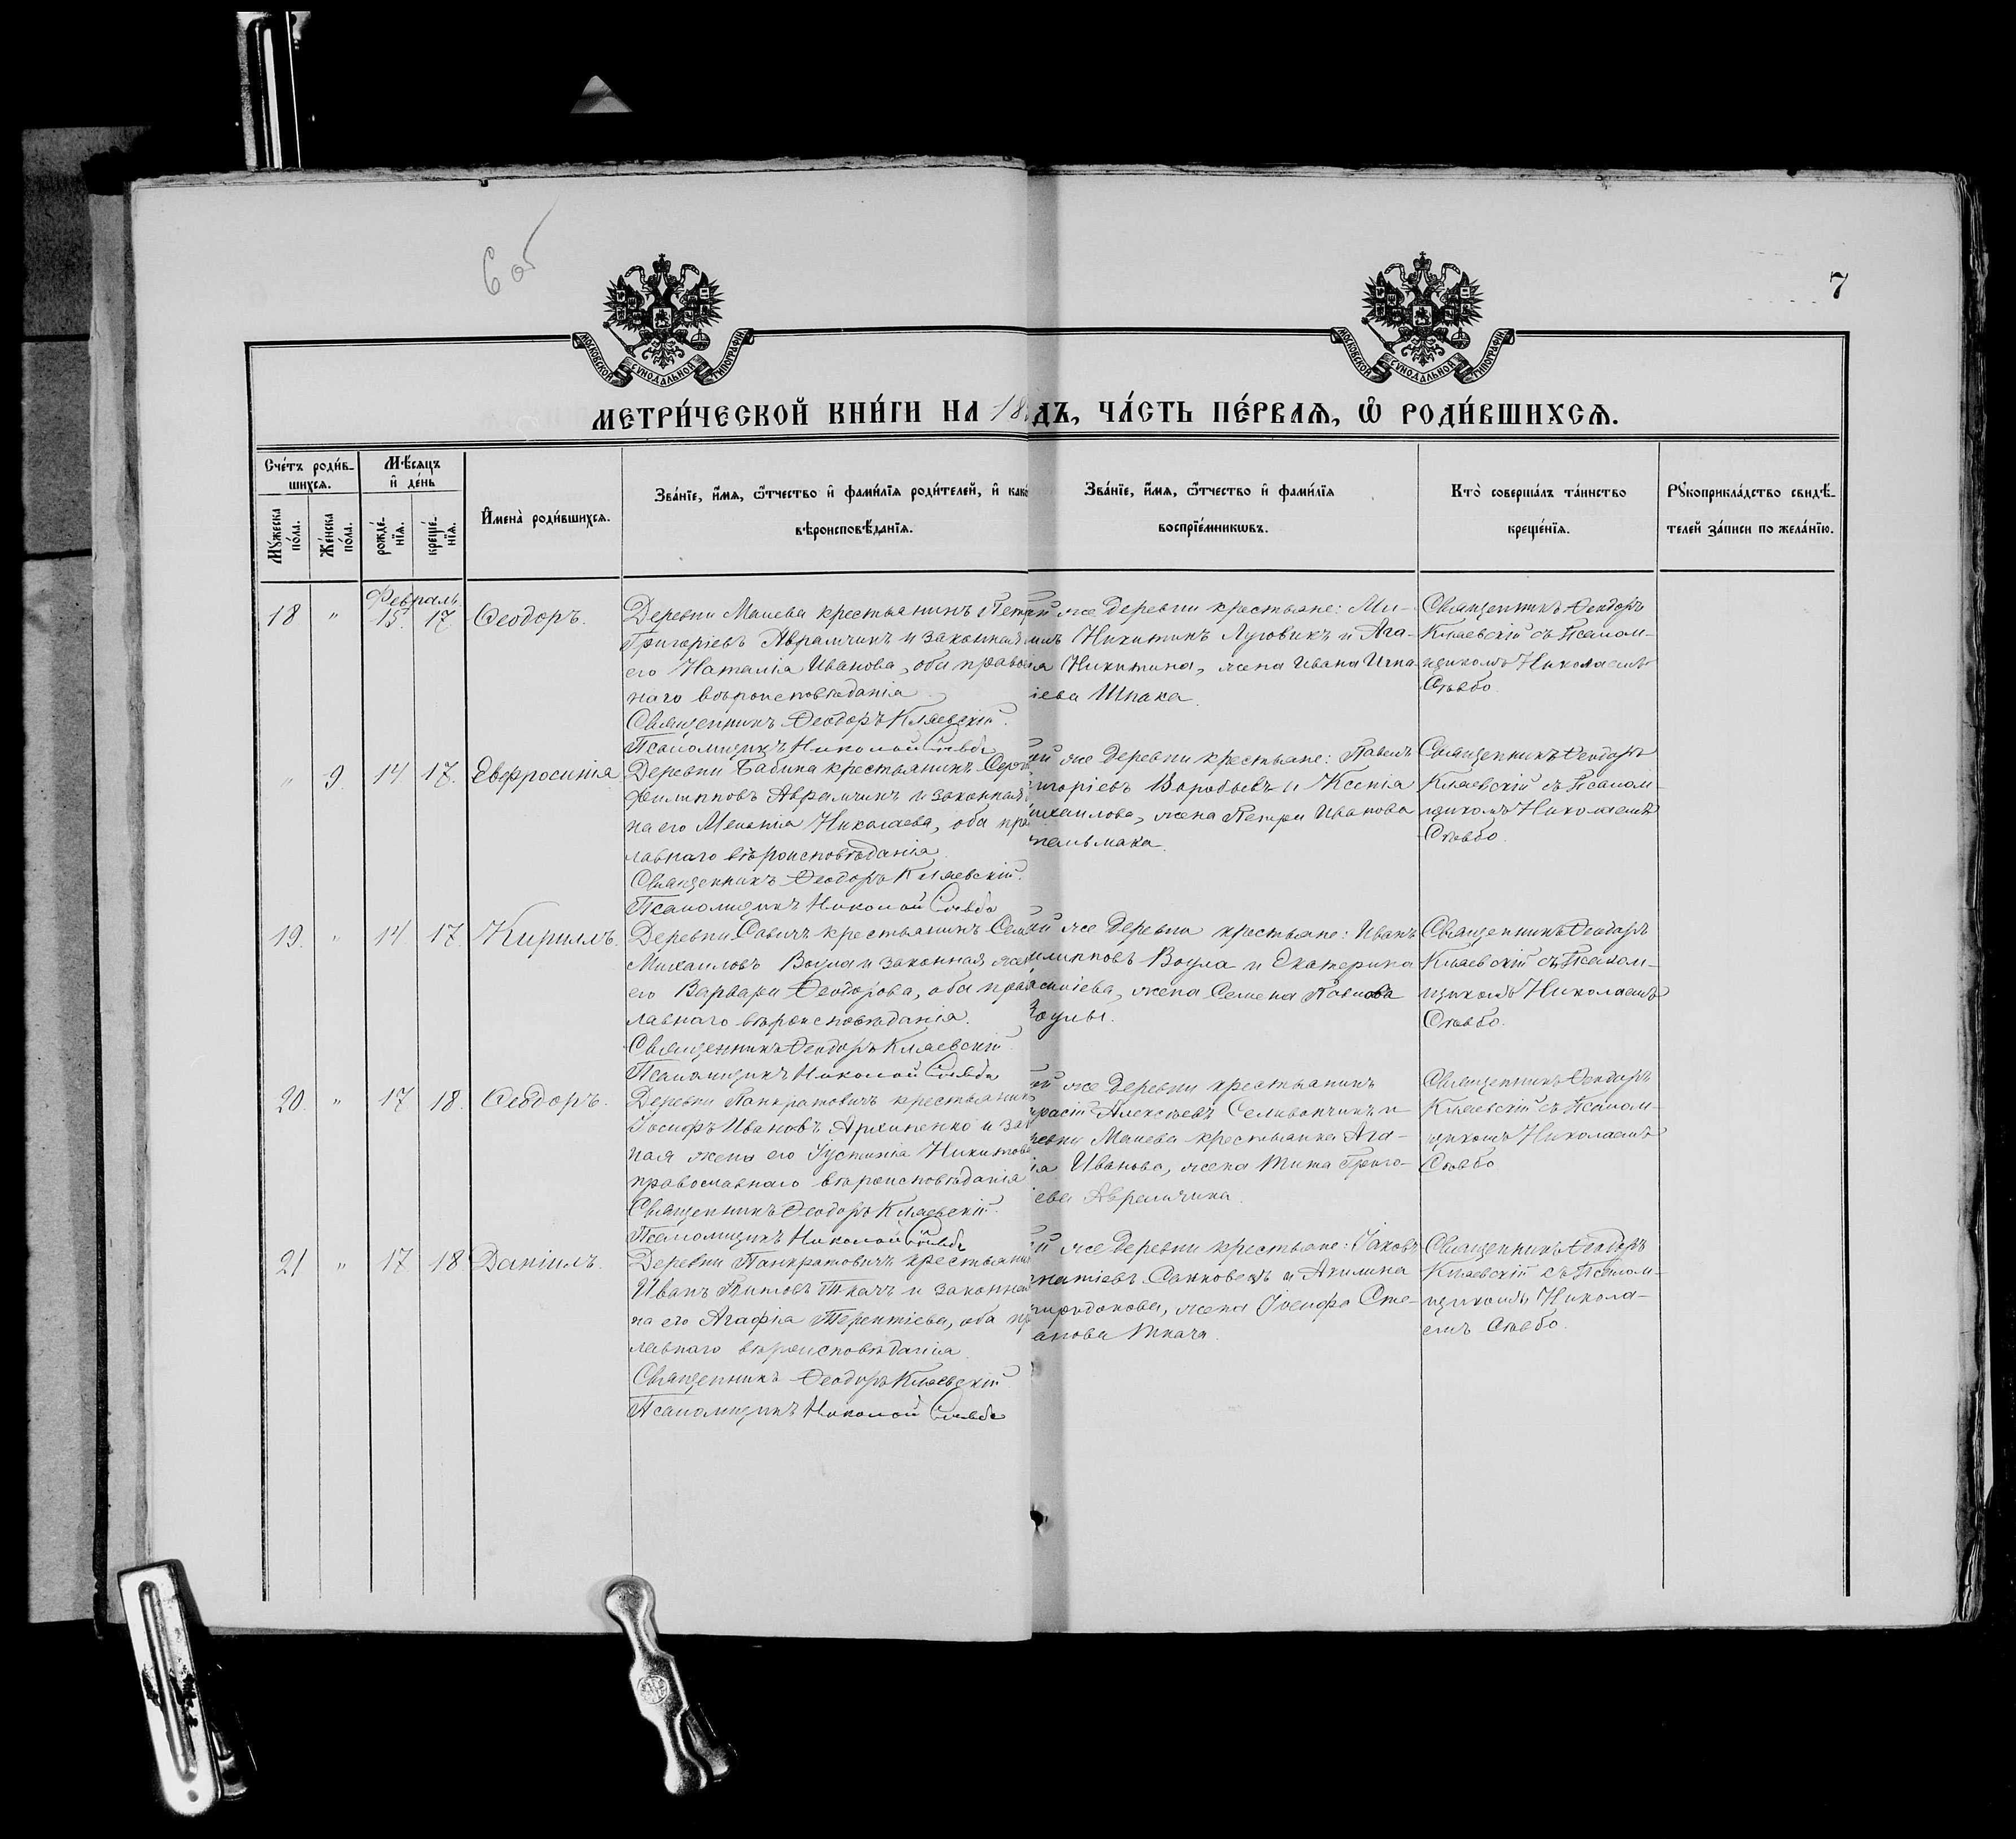 6 об
7
МОСКОВСКОЙ СѴНОДАЛЬНОЙ ТИПОГРАФІИ
МОСКОВСКОЙ СѴНОДАЛЬНОЙ ТИПОГРАФІИ
МЕТРИ́ЧЕСКОЙ КНИ́ГИ НА 18
ДЪ, ЧА́СТЬ ПЕ́РВАѦ, Ѡ РОДИ́ВШИХСѦ.
Сче́тъ роди́в-
шихсѧ.
Мꙋ́жеска
по́ла.
Же́нска
по́ла.
Мѣ́сѧцъ
и҆ де́нь
рожде́-
нїѧ.
креще́-
нїѧ.
И҆мена̀ роди́вшихсѧ.
Зва́нїе, и҆́мѧ, ѻ҆́тчество и҆ фами́лїѧ роди́телей, и҆ како
вѣроисповѣ́данїѧ.
Зва́нїе, и҆́мѧ, ѻ҆́тчество и҆ фами́лїѧ
воспрїе́мникѡвъ.
Кто̀ соверша́лъ та́инство
креще́нїѧ.
Рꙋкоприкла́дство свидѣ́-
телей за́писи по жела́нїю.
Февраль
18 " 15. 17. Ѳеодоръ.
Деревни Мацева крестьянинъ Петр
Григоріевъ Аврамчикъ и законная
его Наталіа Иванова, оба право
наго вѣроисповѣданіа.
Священникъ Ѳеодоръ Кляевскій.
Псаломщикъ Николай Сльвбо
ей же деревни крестьяне: Ми-
илъ Никитинъ Луговикъ и Ага-
ія Никитина, жена Ивана Игна
іева Шпака.
Священникъ Ѳеодоръ
Кляевскій съ Псалом-
щикомъ Николаемъ
" 9. 14 17. Евфросинія
Деревни Бабина крестьянинъ Серг
Филипповъ Аврамчикъ и законная
на его Меланіа Николаева, оба пра
лавнаго вѣроисповѣданіа.
Священникъ Ѳеодоръ Кляевскій.
Псаломщикъ Николай
ей же деревни крестьяне: Павелъ
игоріевъ Воробьевъ и Ксеніа
ихаилова, жена Петра Иванова
тельмака.
Священникъ Ѳеодоръ
Кляевскій съ Псалом-
щикомъ Николаемъ
19. " 14 17. Кириллъ.
Деревни Савичъ крестьянинъ Сем
Михаиловъ Воула и законная жен
его Варвара Ѳеодорова, оба прав
лавнаго вѣроисповѣданіа.
Священникъ Ѳеодоръ Кляевскій
Псаломщикъ Николай
ей же деревни крестьяне: Иванъ
илипповъ Воула и Екатерина
асиліева, жена Семена Павлова
Воулы.
Священникъ Ѳеодоръ
Кляевскій съ Псалом-
щикомъ Николаемъ
20. " 17 18. Ѳеодоръ.
Деревни Панкратовичъ крестьянин
Іосифъ Ивановъ Архипенко и зак
ная жена его Іустиніа Никитова
православнаго вѣроисповѣданіа
Священникъ Ѳеодоръ Кляевскій.
Псаломщикъ Николай
ей же деревни крестьянинъ
Алексѣевъ Селиванчикъ и
ревни Мацева крестьянка Ага-
ія Иванова, жена Тита Григо-
іева Аврамчика.
Священникъ Ѳеодоръ
Кляевскій съ Псалом-
щикомъ Николаемъ
21 " 17 18 Даніилъ.
Деревни Панкратовичъ крестьяни
Иванъ Титовъ Ткачъ и законна
на его Агафіа Терентіева, оба пр
лавнаго вѣроисповѣданіа.
Священникъ Ѳеодоръ Кляевскій
Псаломщикъ Николай
ей же деревни крестьяне: Іаковъ
гнатіевъ Санковецъ и Акилина
пиридонова, жена Іосифа Сте-
анова Ткача.
Священникъ Ѳеодоръ
Кляевскій съ Псалом-
щикомъ Никола-
емъ